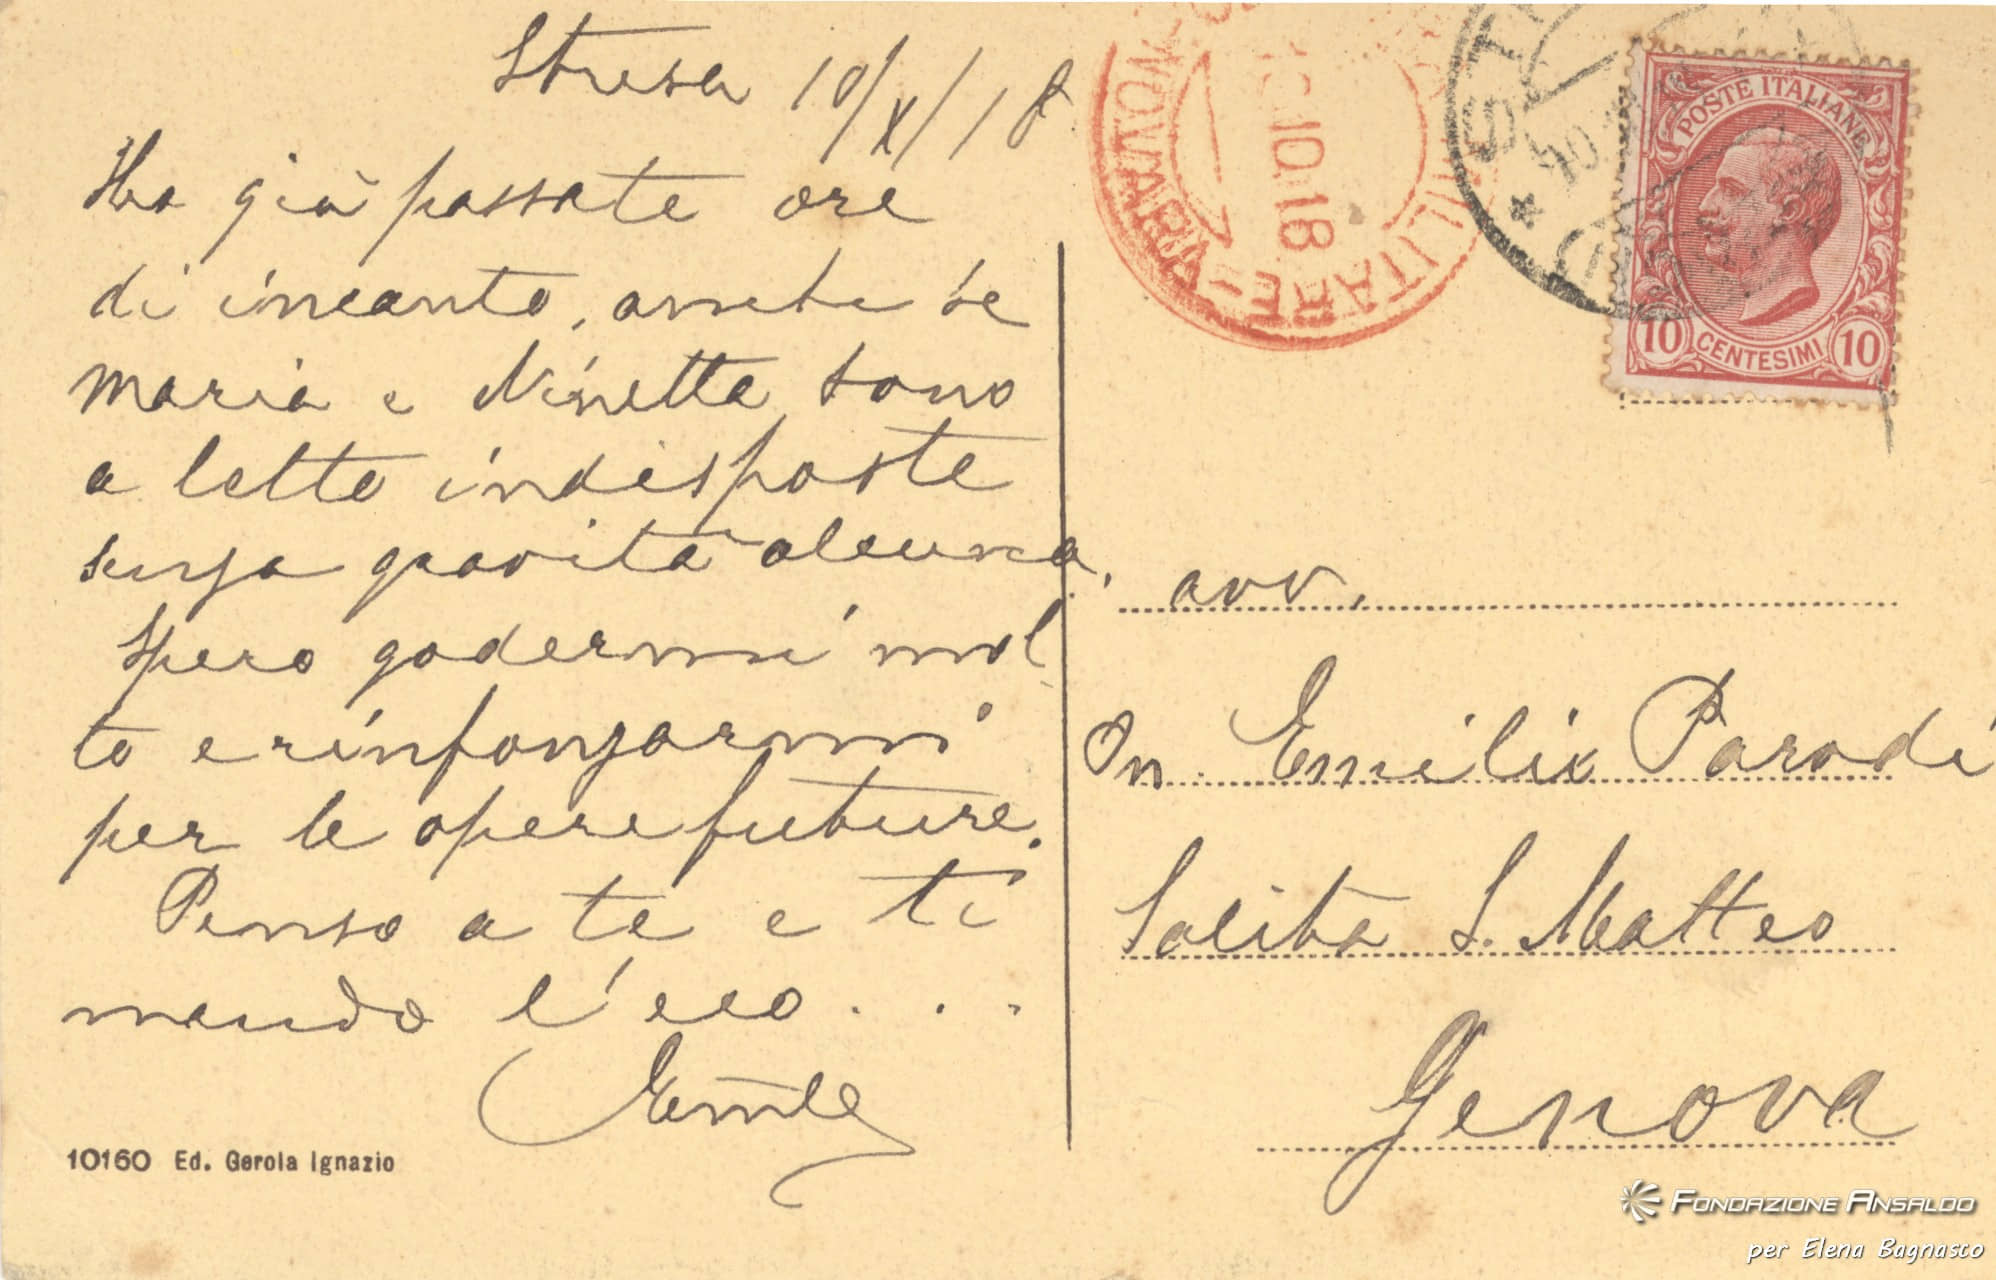 Stresa 10/X/18
Ho già passate ore
di incanto, anche se
Maria e Ninetta sono
a letto indisposte
senza gravità alcuna.
Spero godermi mol
to e rinfonzarmi
per le opere future.
Penso a te e ti
mando l'eco...
10160 Ed. Gerola Ignazio
MILITARE - NOVARA
10.18
POSTE ITALIANE
10 CENTESIMI 10
avv.
On. Emilio Parodi
Salita S. Matteo
Genova
FONDAZIONE ANSALDO
per Elena Bagnasco